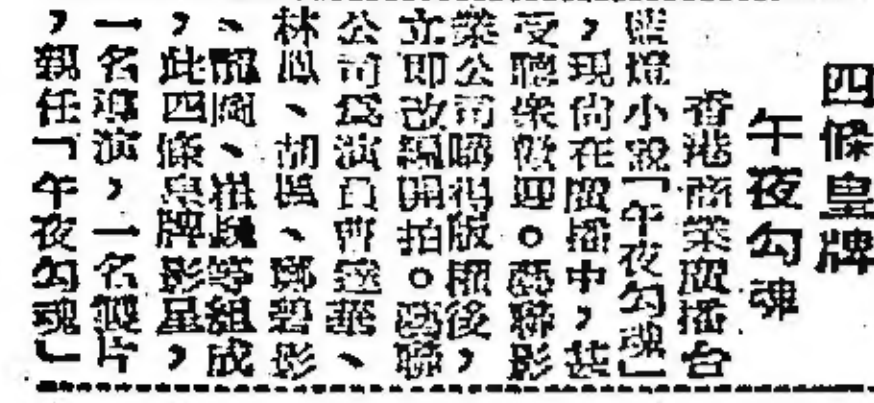 四條皇牌
午夜勾魂
香港商業廣播台
藍燈小說「午夜勾魂」
，現尚在廣播中，甚
受聽衆歡迎。藝聯影
業公司購得版權後，
立即改編開拍。藝聯
公司爲演員曹達華、
林鳳、胡楓、鄭碧影
、、等組成
，此四條皇牌影星，
一名導演，一名製片
，親任「午夜勾魂」